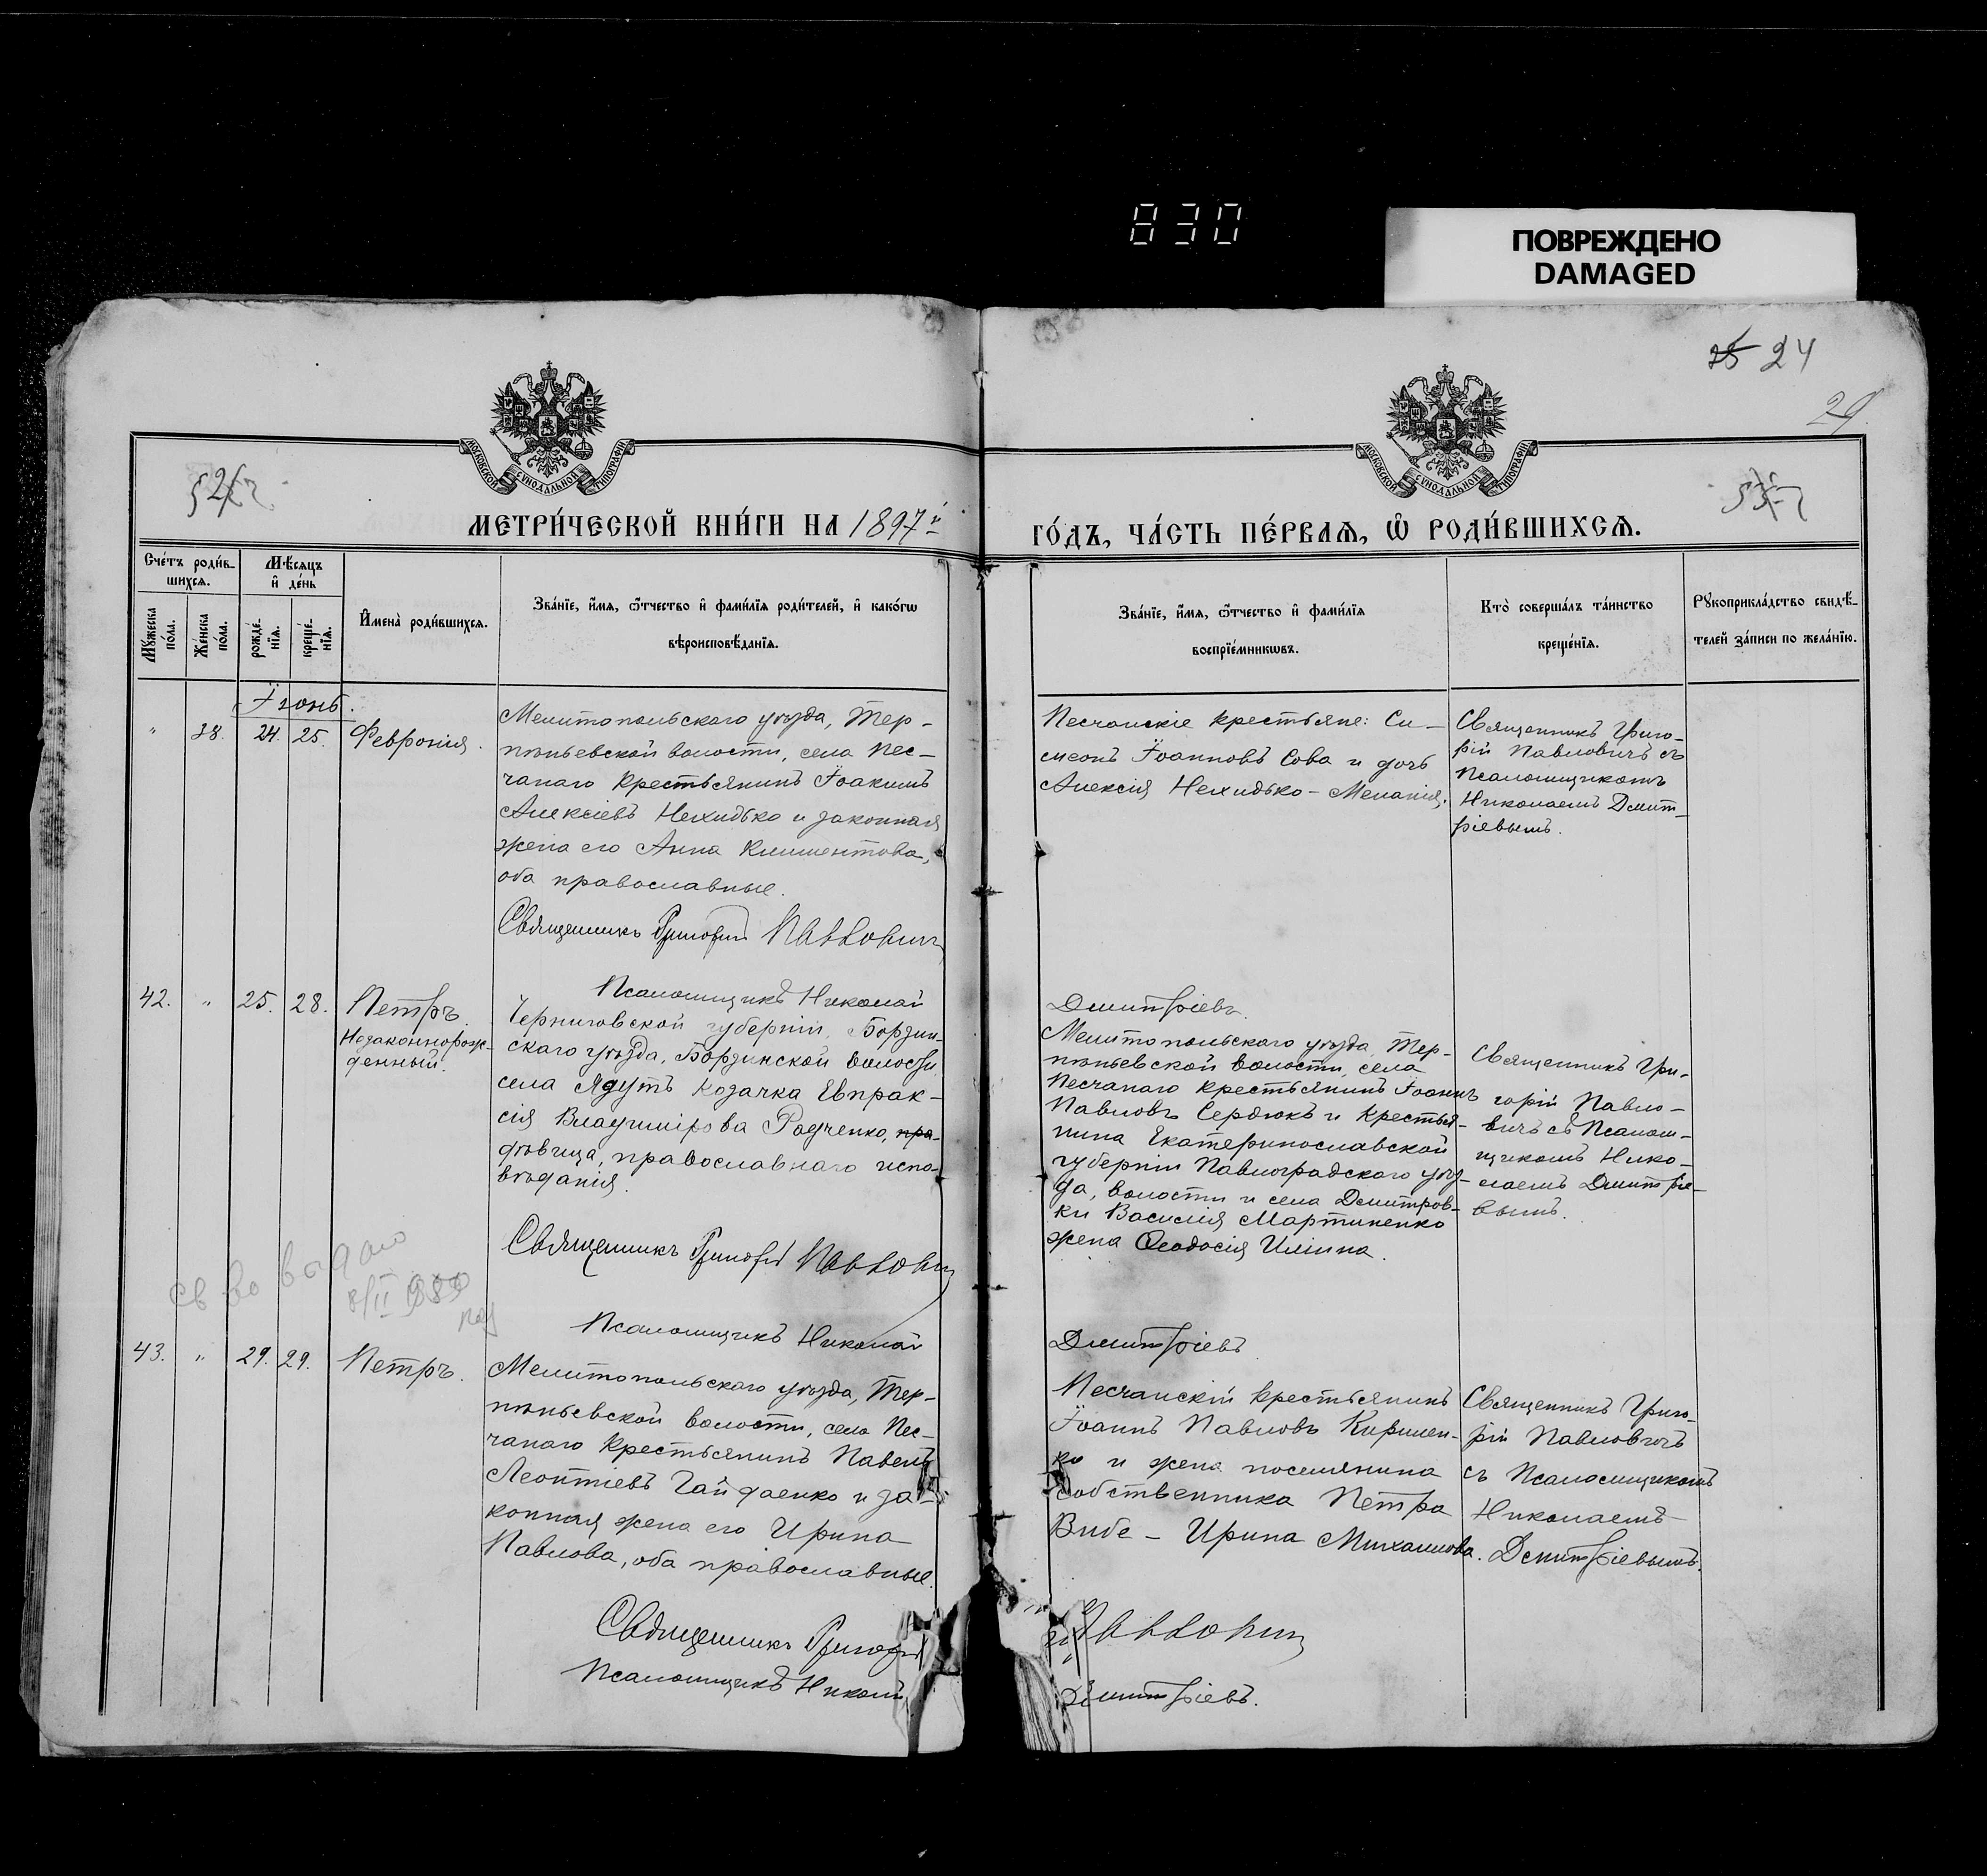 830
ПОВРЕЖДЕНО
DAMAGED
25 24
29.
МОСКОВСКОЙ СѴНОДАЛЬНОЙ ТИПОГРАФІИ
МОСКОВСКОЙ СѴНОДАЛЬНОЙ ТИПОГРАФІИ
МЕТРИ́ЧЕСКОЙ КНИ́ГИ НА 1897й
ГО́ДЪ, ЧА́СТЬ ПЕ́РВАѦ, Ѡ РОДИ́ВШИХСѦ.
Сче́тъ роди́в-
шихсѧ.
Мѣ́сѧцъ
и҆ де́нь
Мꙋ́жеска по́ла.
Же́нска по́ла.
рожде́-нїѧ.
креще́-нїѧ.
И҆мена̀ роди́вшихсѧ.
Зва́нїе, и҆́мѧ, ѻ҆́тчество и҆ фами́лїѧ роди́телей, и҆ како́гѡ
вѣроисповѣ́данїѧ.
Зва́нїе, и҆́мѧ, ѻ҆́тчество и҆ фами́лїѧ
воспрїе́мникѡвъ.
Кто̀ соверша́лъ та́инство
креще́нїѧ.
Рꙋкоприкла́дство свидѣ́-
телей за́писи по жела́нїю.
Іюнь.
" 38. 24. 25. Февронія.
Мелитопольскаго уѣзда, Тер-
пѣньевской волости, села Пес-
чанаго крестьянинъ Іоакимъ
Алексіевъ Нехидько и законная
жена его Анна Климентова,
оба православные.
Священникъ Григорій Павловичъ
Псаломщикъ Николай
Песчанскіе крестьяне: Си-
меонъ Іоанновъ Сова и дочь
Алексія Нехидько - Меланія.
Священникъ Григо-
рій Павловичъ съ
Псаломщикомъ
Николаемъ Дмит-
ріевымъ.
Дмитріевъ.
42. " 25. 28. Петръ.
Незаконнорож-
денный.
Черниговской губерніи, Борзин-
скаго уѣзда, Борзинской волости,
села Ядутъ козачка Евпрак-
сія Владимірова Радченко, пра-
дѣвица, православнаго испо-
вѣданія.
Священникъ Григорій Павловичъ
Псаломщикъ Николай
Мелитопольскаго уѣзда, Тер-
пѣньевской волости, села
Песчанаго крестьянинъ Іоаннъ
Павловъ Сердюкъ и крестья-
нина Екатеринославской
губерніи Павлоградскаго уѣз-
да, волости и села Дмитров-
ки Василія Мартиненко
жена Ѳеодосія Иліина.
Священникъ Гри-
горій Павло-
вичъ съ Псалом-
щикомъ Нико-
лаемъ Дмитріе-
вымъ.
Дмитріевъ
св во выдано
8/II
43. " 29. 29. Петръ.
Мелитопольскаго уѣзда, Тер-
пѣньевской волости, села Пес-
чанаго крестьянинъ Павелъ
Леонтіевъ Гайдаенко и за-
конная жена его Ирина
Павлова, оба православные.
Священникъ Григорій
Псаломщикъ Николай
Песчанскій крестьянинъ
Іоаннъ Павловъ Кирилен-
ко и жена поселянина
собственника Петра
Вибе - Ирина Михаилова.
Священникъ Григо-
рій Павловичъ
съ Псаломщикомъ
Николаемъ
Дмитріевымъ.
Павловичъ
Дмитріевъ.